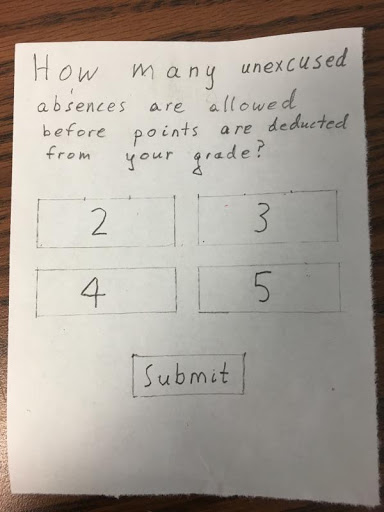 How many unexcused
absences are allowed
before points are deducted
from your grade?
2 3
4 5
Submit